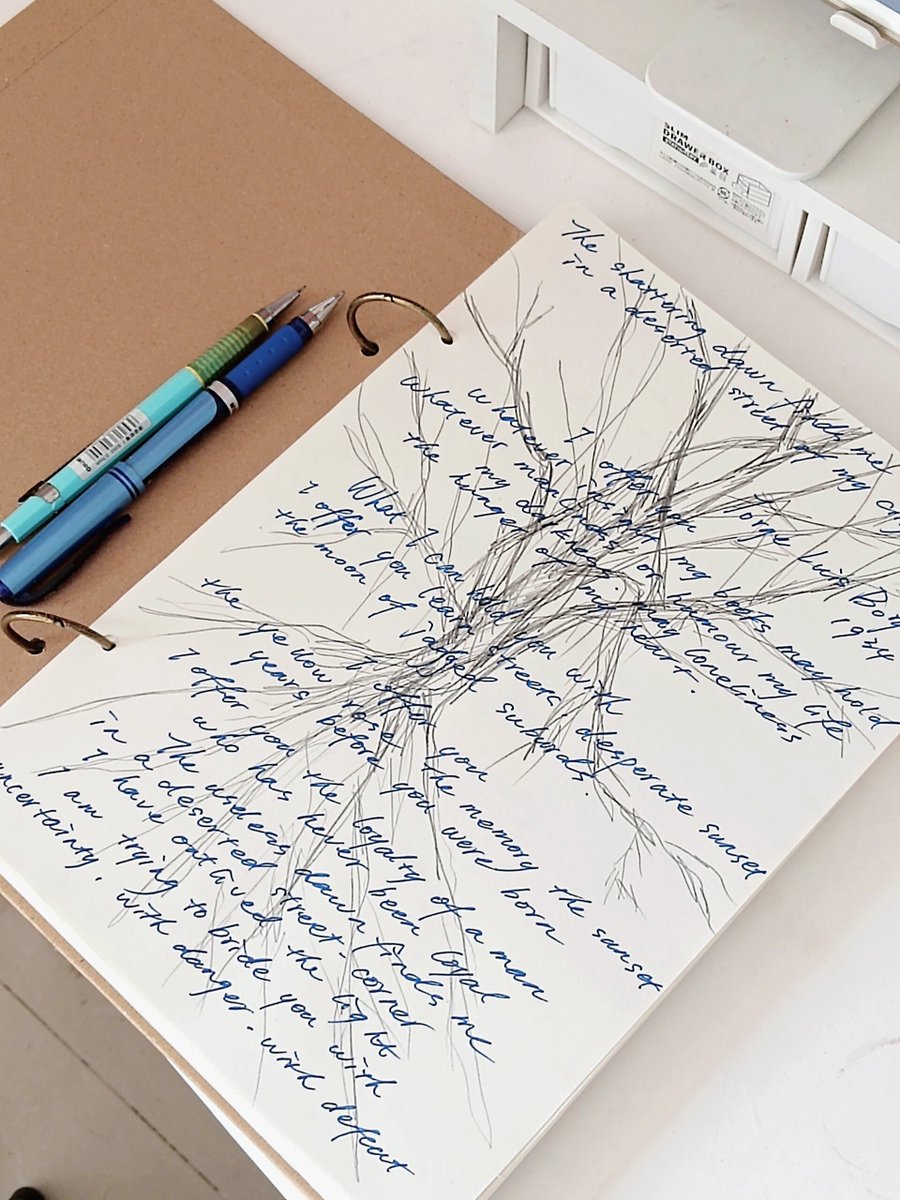 SLIM
DRAWER BOX
The shattering dawn finds me
in a deserted street of my city
Jorge Luis Borges
1934
whatever I offer my books may hold
whatever manliness or humour my life
the hunger of my heart. loneliness
What I can hold you with
I offer you lean streets desperate sunset
the moon of jagged suburbs!
I offer you the memory the sunset
the yellow rose
years before you were born
I offer you the loyalty of a man
who has never been loyal
The useless dawn finds me
in a deserted street-corner
I have outlived the night
I am trying to bride you with
uncertainty. with danger. with defeat